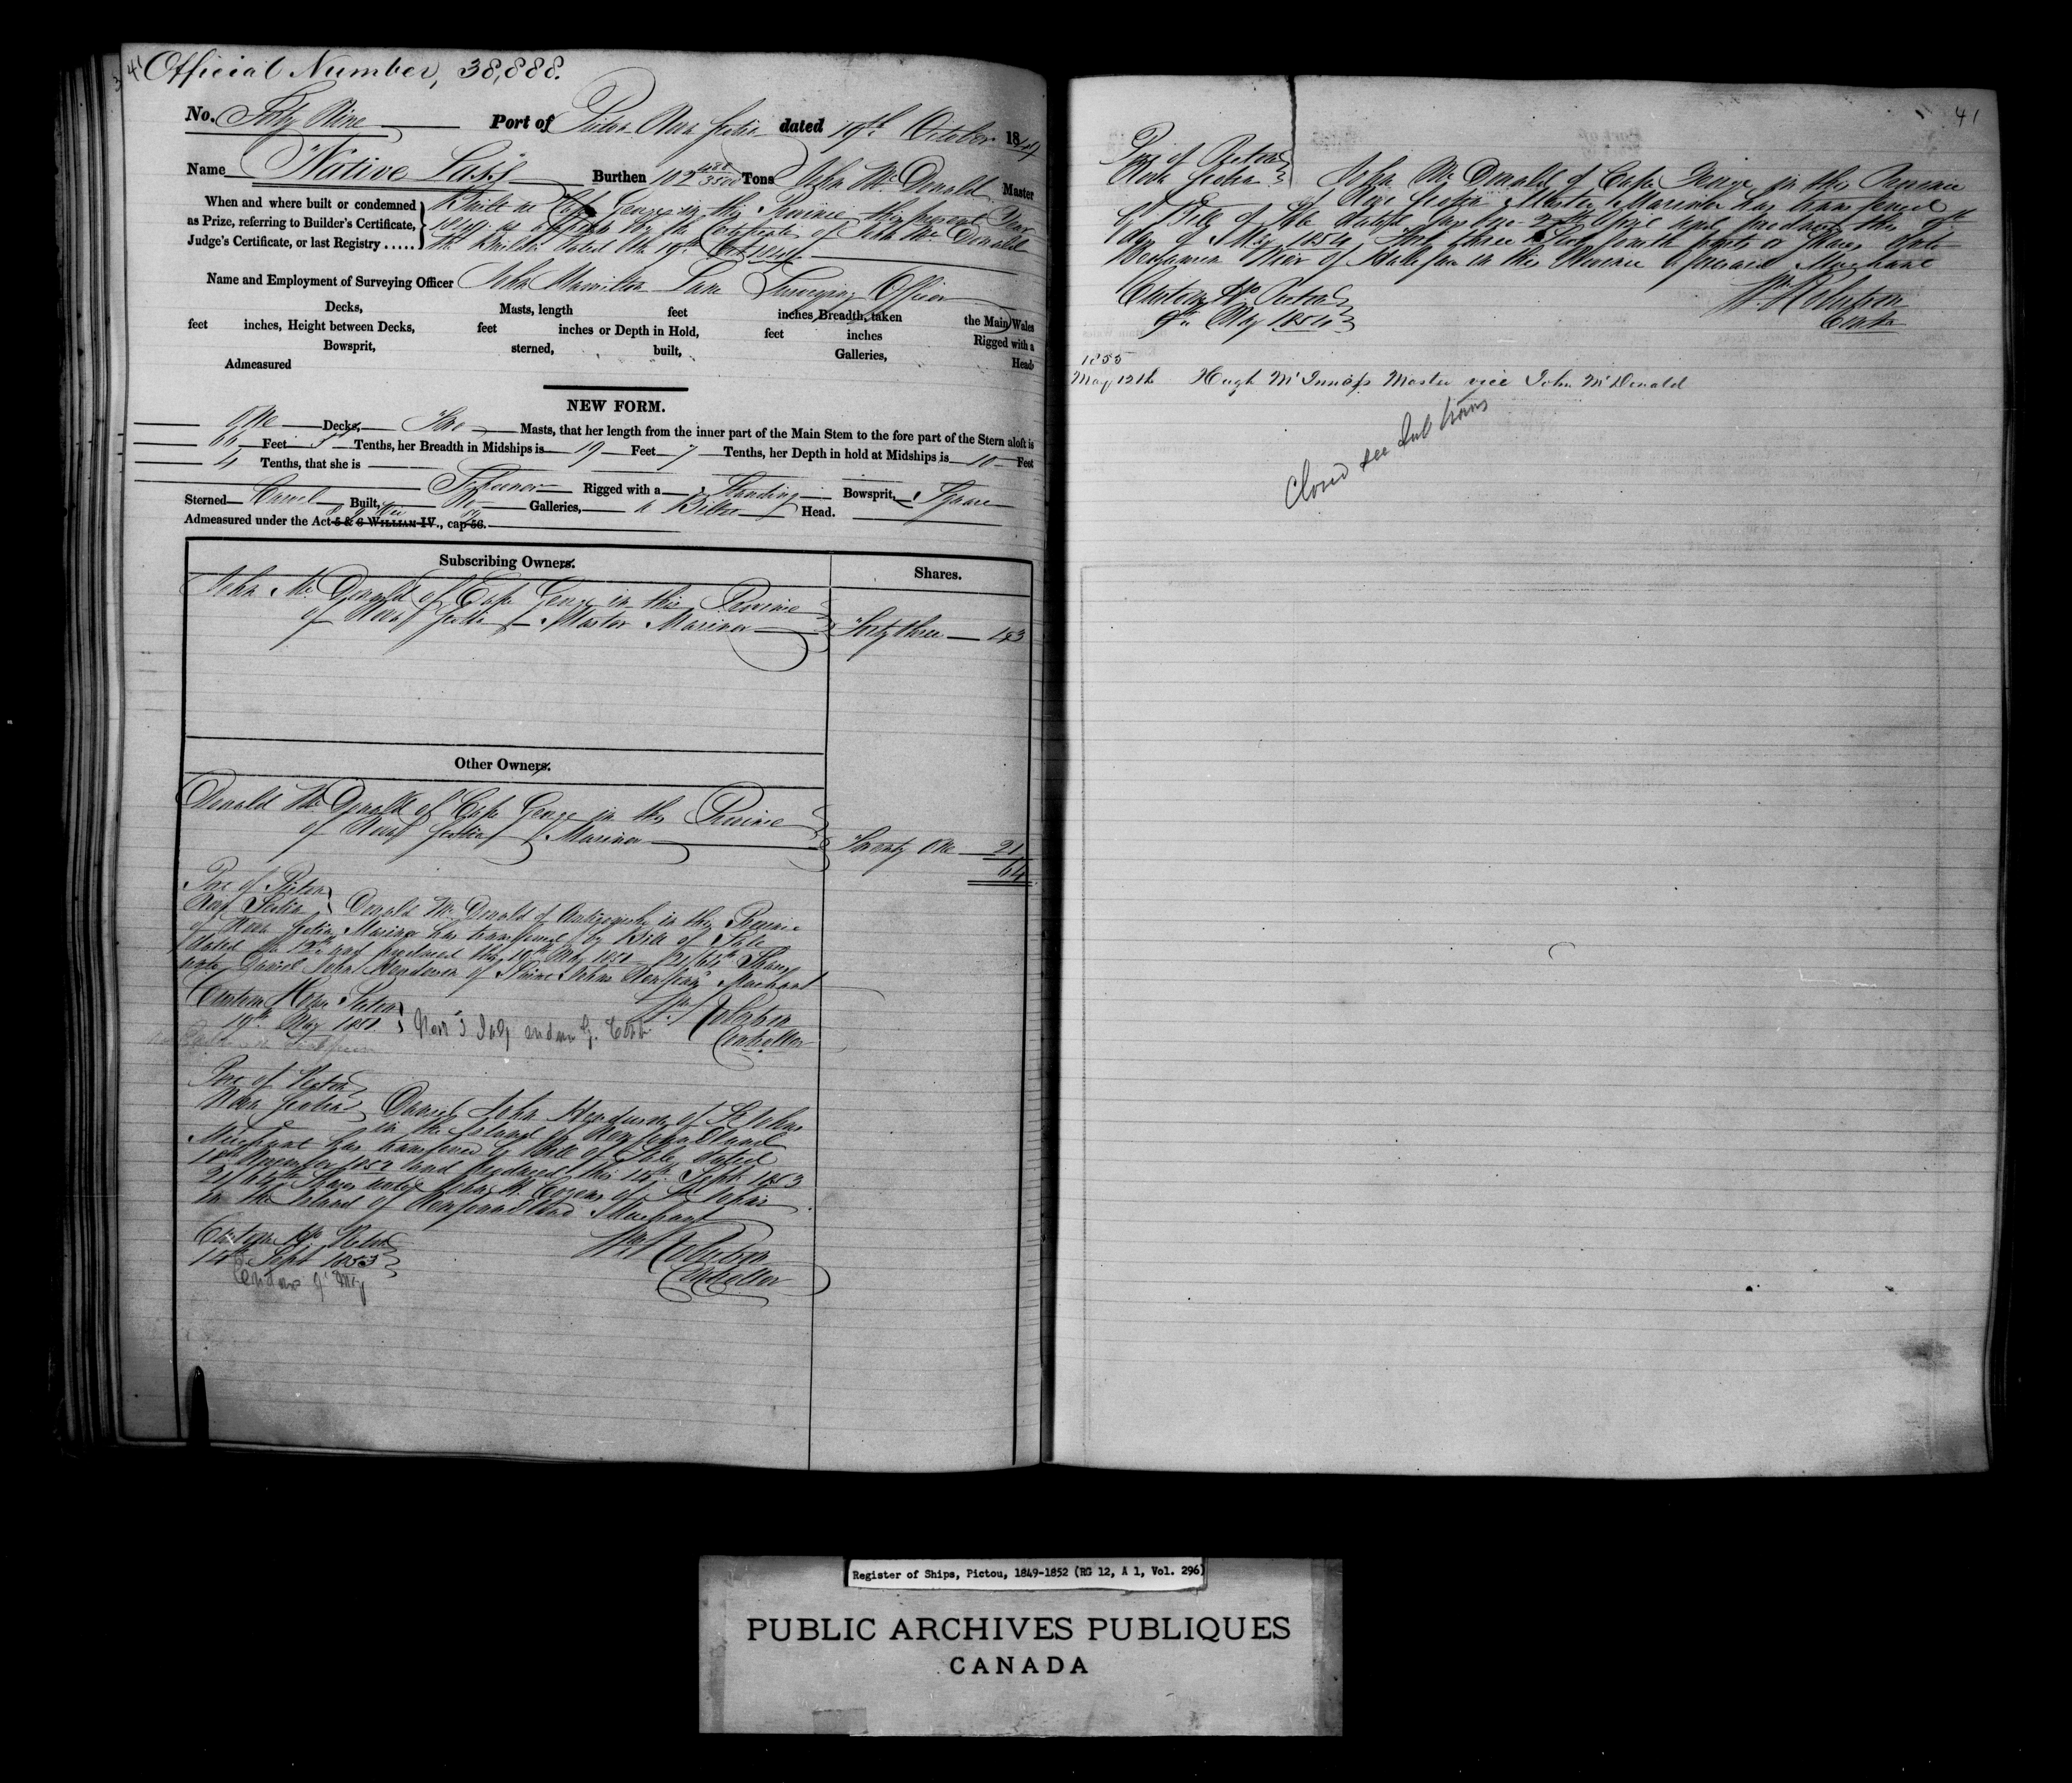 41 Official Number, 38,888.
No. Forty Nine Port of Pictou Nova Scotia dated 19th October 1849
Name "Native Lass" Burthen 102 488/3500 Tons John McDonald Master
When and where built or condemned
as Prize, referring to Builder's Certificate,
Judge's Certificate, or last Registry .....
Built at Cape George in this Province the present Year
1849 as appears by the Certificate of John McDonald
the Builder dated the 19th Oct 1849.
Name and Employment of Surveying Officer John Hamilton Lane Surveying Officer
Decks, Masts, length feet inches Breadth, taken the Main Wales
feet inches, Height between Decks, feet inches or Depth in Hold, feet inches Rigged with a
Bowsprit, sterned, built, Galleries, Head
Admeasured
NEW FORM.
One Decks, Two Masts, that her length from the inner part of the Main Stem to the fore part of the Stern aloft is
66 Feet 5 Tenths, her Breadth in Midships is 19 Feet 7 Tenths, her Depth in hold at Midships is 10 Feet
4 Tenths, that she is Schooner Rigged with a Standing Bowsprit, Square
Sterned Carvel Built, No Galleries, a Billet Head.
Admeasured under the Act 5 & 6 WILLIAM IV., cap 56.
Subscribing Owners. Shares.
John McDonald of Cape George in this Province
of Nova Scotia Master Mariner Forty three 43
Other Owners.
Donald McDonald of Cape George in this Province
of Nova Scotia Mariner Twenty One 21
64
Port of Pictou
Nova Scotia Donald McDonald of Antigonish in this Province
of Nova Scotia Mariner has transferred by Bill of Sale
dated the 12th and produced this 19th May 1851 21/64th Shares
unto Daniel John Henderson of Saint Johns Newfoundland Merchant
Custom House Pictou Wm Robertson
19th May 1851 Controller
Port of Pictou
Nova Scotia Daniel John Henderson of St Johns
in the Island of Newfoundland
Merchant has transferred by Bill of Sale dated
1852 and produced this 14th Sept 1853
21/64th Shares unto John H. Cozens of St Johns
in the Island of Newfoundland Merchant
Custom Ho Pictou Wm Robertson
14th Sept 1853 Controller
41
Port of Pictou
Nova Scotia John McDonald of Cape George in the Province
of Nova Scotia Master Mariner has transferred
by Bill of Sale dated 2nd April and produced this 9th
day of May 1854 Forty three Sixty fourth parts or Shares unto
Benjamin Weir of Halifax in this Province aforesaid Merchant
Custom Ho Pictou Wm Robertson
9th May 1854 Contr
1855
May 12th Hugh McInniss Master vice John McDonald
Closed see Sub trans
Register of Ships, Pictou, 1849-1852 (RG 12, A 1, Vol. 296)
PUBLIC ARCHIVES PUBLIQUES
CANADA